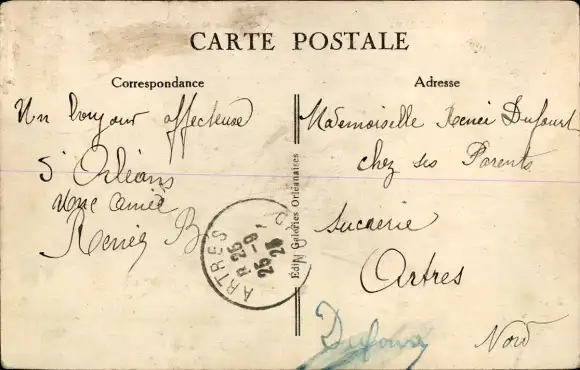 CARTE POSTALE
Correspondance
Un bonjour affecteuse
d'Orléans
Une amie
Renée B
Adresse
Mademoiselle Renée Dufourt
chez ses Parents
Sucrerie
Artres
Nord
Dufour
Edit. Galeries Orléanaises
ARTRES
25
25-9